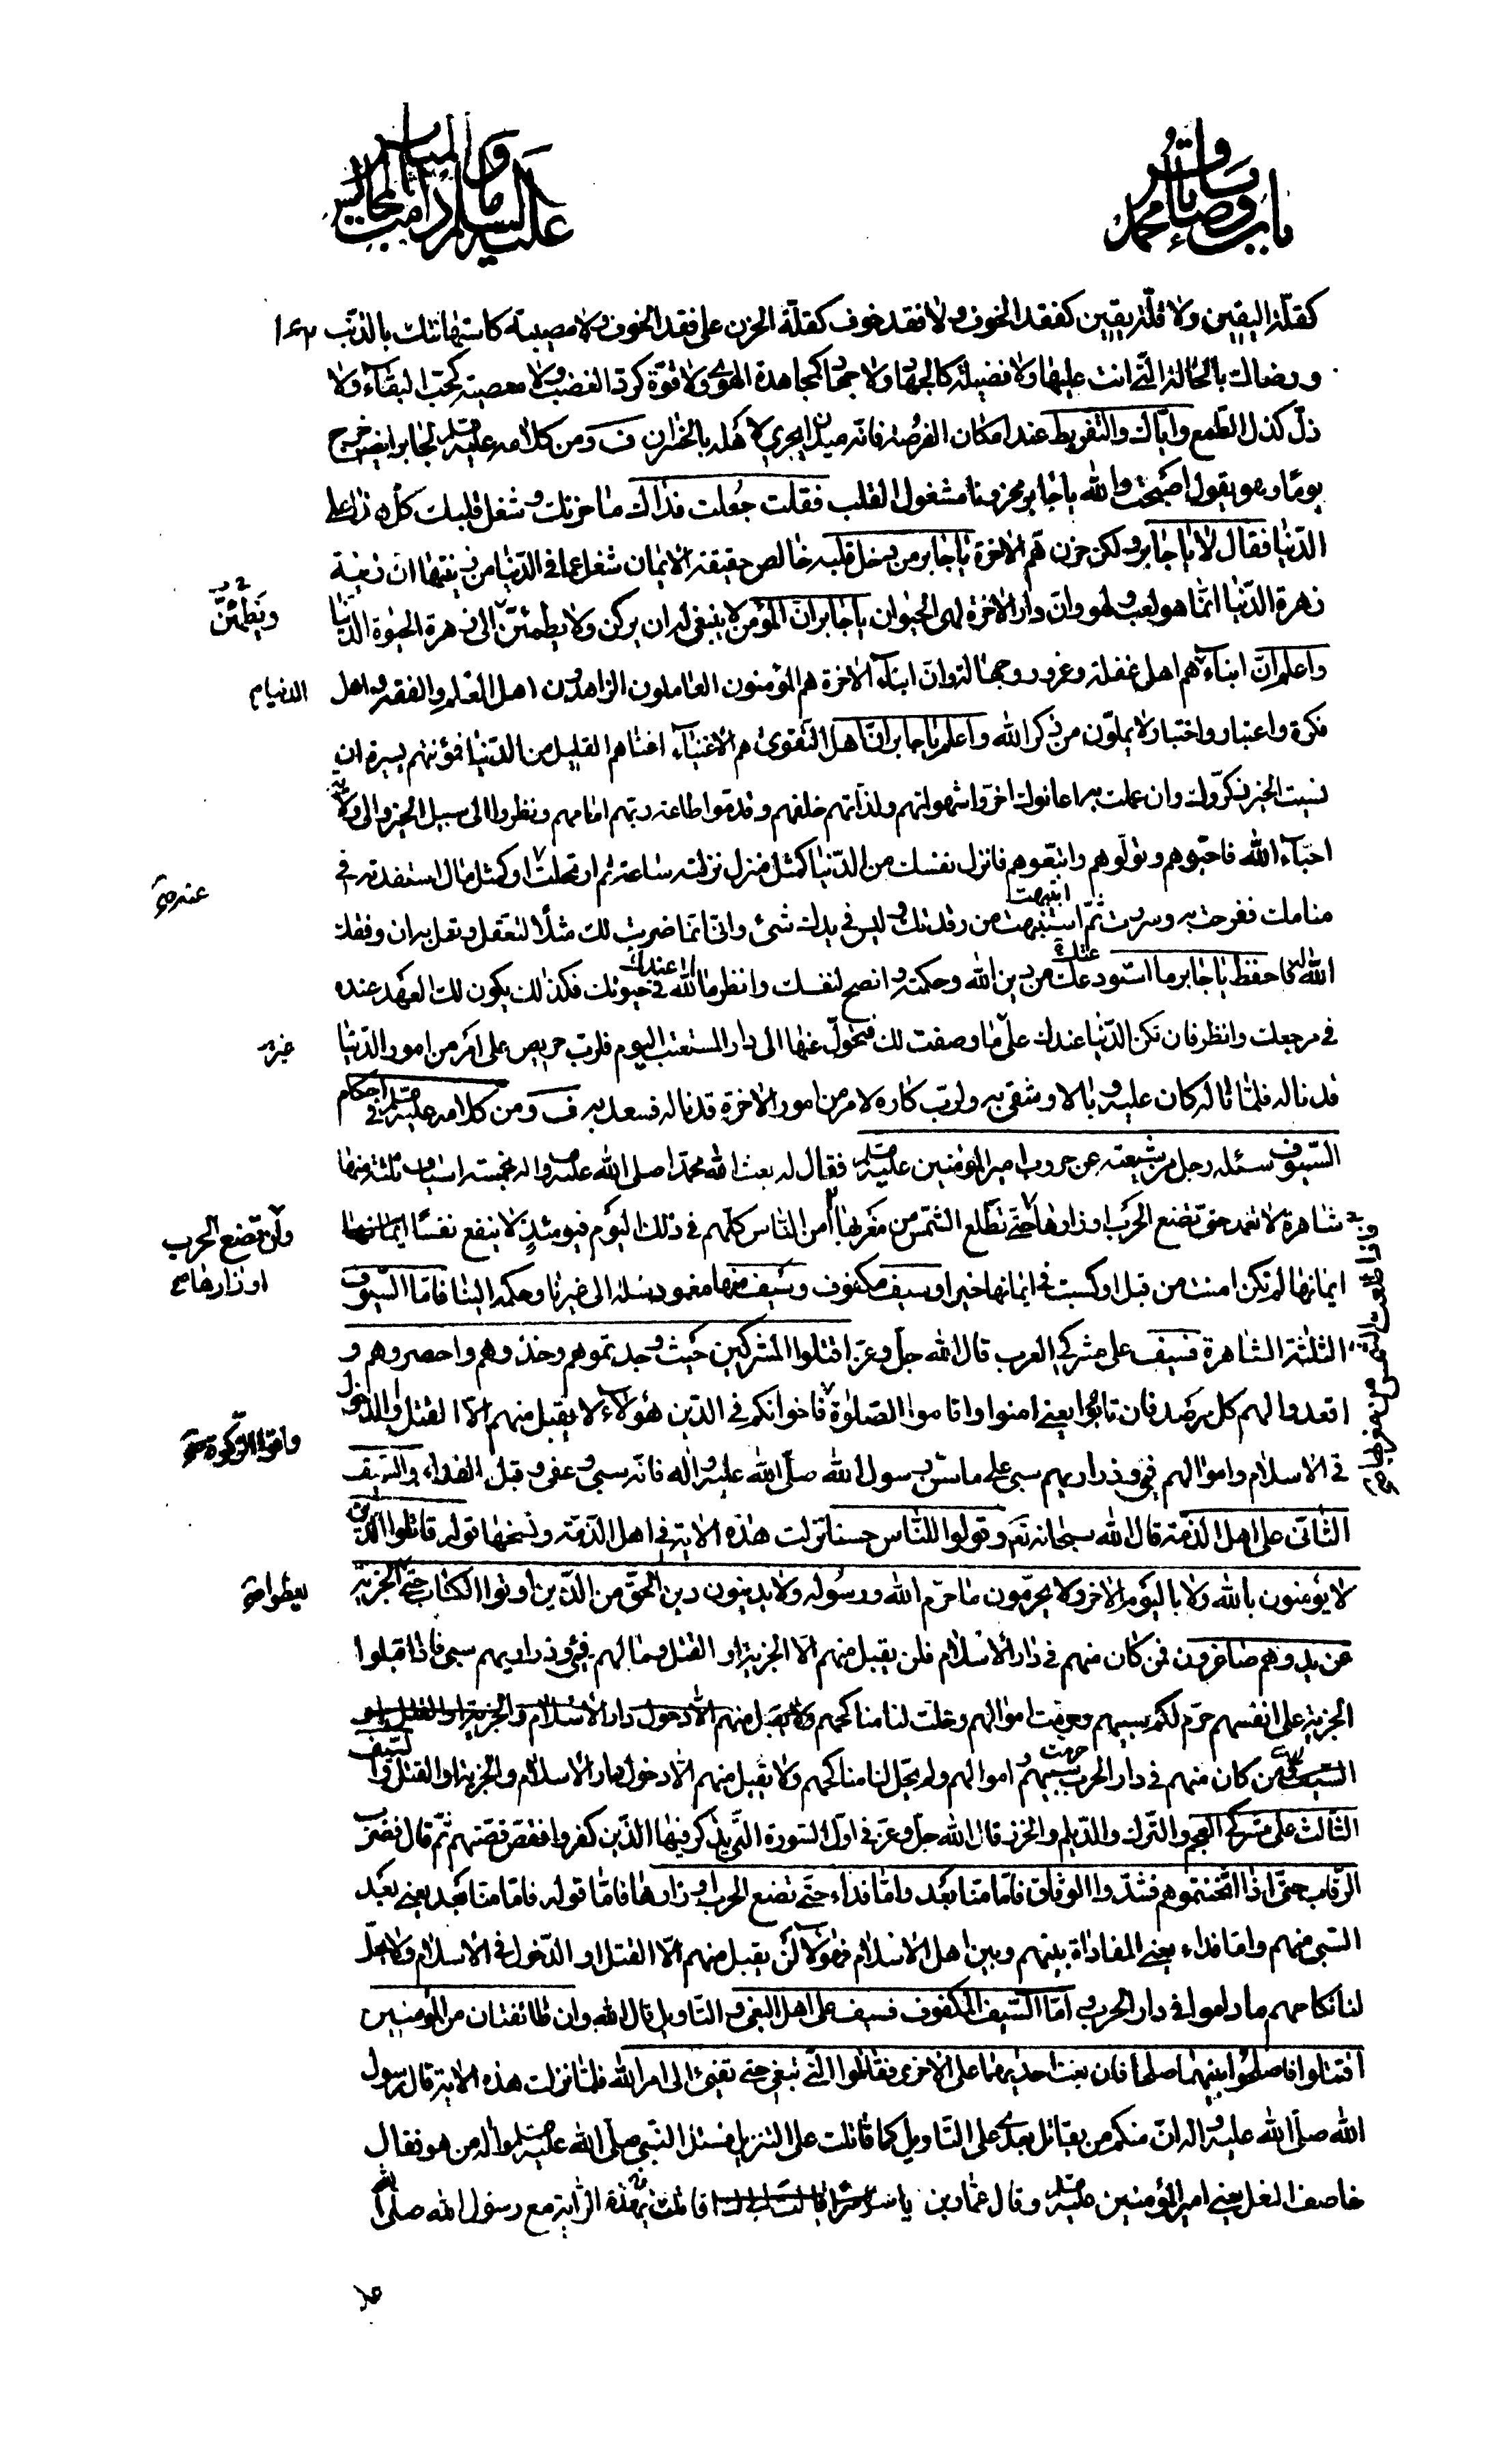 باب وصايا محمد باقر
عليه السلام
كقلة اليقين ولا قلة يقين كفقد الخوف ولا فقد خوف كقلة الحزن على فقد الخوف ولا مصيبة كاستهانتك بالذنب
ورضاك بالحالة التي انت عليها ولا فضيلة كالجهاد ولا جهاد كمجاهدة الهوى ولا قوة كرد الغضب ولا معصية كحب البقاء ولا
ذل كذل الطمع واياك والتفريط عند امكان الفرصة فانه ميدان يجري لاهله بالخسران ف ومن كلامه عليه لجابر ايضا خرج
يوما وهو يقول اصبحت والله يا جابر محزونا مشغول القلب فقلت جعلت فداك ما حزنك وشغل قلبك كل هذا على
الدنيا فقال لا يا جابر ولكن حزن هم الاخرة يا جابر من دخل قلبه خالص حقيقة الايمان شغل عما في الدنيا من زينتها ان زينة
زهرة الدنيا انما هو لعب ولهو وان دار الاخرة لهي الحيوان يا جابر ان المؤمن لا ينبغي له ان يركن ولا يطمئن الى زهرة الحيوة الدنيا
ويطمئن
واعلم ان ابناء هم اهل غفلة وغرور وجهالة وان ابناء الاخرة هم المؤمنون العاملون الزاهدون اهل العلم والفقه واهل
الدنيا
فكرة واعتبار واختبار لا يملون من ذكر الله واعلم يا جابر ان اهل التقوى هم الاغنياء اغناهم القليل من الدنيا فمؤنتهم يسيرة ان
نسيت الخير ذكروك وان عملت به اعانوك اخروا شهواتهم ولذاتهم خلفهم وقدموا طاعة ربهم امامهم ونظروا الى سبيل الخير والى ولاية
احباء الله فاحبوهم وتولوهم واتبعوهم فانزل نفسك من الدنيا كمثل منزل نزلته ساعة ثم ارتحلت او كمثل مال استفدته في
عنه
منامك ففرحت به وسررت ثم استنبهت من رقدتك وليس في يدك شئ واني انما ضربت لك مثلا لتعقل وتعمل به ان وفقك
انتبهت
الله له فاحفظ يا جابر ما استودعك من دين الله وحكمته وانصح لنفسك وانظر ما لله في حيوتك فكذلك يكون لك العهد عنده
عندك
في مرجعك وانظر فان تكن الدنيا عندك على ما وصفت لك فتحول عنها الى دار المستعتب اليوم فلرب حريص على امر من امور الدنيا
قد ناله فلما ناله كان عليه وبالا وشقي به ولرب كاره لامر من امور الاخرة قد ناله فسعد به ف ومن كلامه عليه في احكام
السيوف سئله رجل من شيعته عن حروب امير المؤمنين عليه فقال له بعث الله محمدا صلى الله عليه واله بخمسة اسياف ثلثة منها
شاهرة لا تغمد حتى تضع الحرب اوزارها حتى تطلع الشمس من مغربها امن الناس كلهم في ذلك اليوم فيومئذ لا ينفع نفسا
ولن تضع الحرب
اوزارها
فاذا طلعت الشمس من مغربها
ايمانها لم تكن امنت من قبل او كسبت في ايمانها خيرا وسيف مكفوف وسيف منها مغمود سله الى غيرنا وحكمه الينا فاما السيوف
الثلثة الشاهرة فسيف على مشركي العرب قال الله جل وعز اقتلوا المشركين حيث وجدتموهم وخذوهم واحصروهم و
اقعدوا لهم كل مرصد فان تابوا يعني امنوا واقاموا الصلوة فاخوانكم في الدين هؤلاء لا يقبل منهم الا القتل والدخول
واتوا الزكوة
في الاسلام واموالهم فئ وذراريهم سبي على ما سن رسول الله صلى الله عليه واله فانه سبي وعفى وقبل الفداء والسيف
الثاني على اهل الذمة قال الله سبحانه وقولوا للناس حسنا نزلت هذه الاية في اهل الذمة ونسخها قوله قاتلوا الذين
لا يؤمنون بالله ولا باليوم الاخر ولا يحرمون ما حرم الله ورسوله ولا يدينون دين الحق من الذين اوتوا الكتاب حتى الجزية
يعطوا
عن يد وهم صاغرون فمن كان منهم في دار الاسلام فلن يقبل منهم الا الجزية او القتل ومالهم فئ وذراريهم سبي فاذا قبلوا
الجزية على انفسهم حرم لكم سبيهم وحرمت اموالهم وحلت لنا مناكحهم
ومن كان منهم في دار الحرب سبيهم واموالهم ولم يحل لنا مناكحهم ولا يقبل منهم الا دخول دار الاسلام والجزية او القتل والسيف
الثالث على مشركي العجم والترك والديلم والخزر قال الله جل وعز في اول السورة التي يذكر فيها الذين كفروا فقص قصتهم ثم قال فضرب
الرقاب حتى اذا اثخنتموهم فشدوا الوثاق فاما منا بعد واما فداء حتى تضع الحرب اوزارها فاما قوله فاما منا بعد يعني بعد
السبي منهم واما فداء يعني المفاداة بينهم وبين اهل الاسلام فهؤلاء لن يقبل منهم الا القتل او الدخول في الاسلام ولا يحل
لنا نكاحهم ما داموا في دار الحرب واما السيف المكفوف فسيف على اهل البغي والتاويل قال الله وان طائفتان من المؤمنين
اقتتلوا فاصلحوا بينهما صلحا فان بغت احديهما على الاخرى فقاتلوا التي تبغي حتى تفئ الى امر الله فلما نزلت هذه الاية قال رسول
الله صلى الله عليه واله ان منكم من يقاتل بعدي على التاويل كما قاتلت على التنزيل فسئل النبي صلى الله عليه واله من هو فقال
خاصف النعل يعني امير المؤمنين عليه وقال عمار بن ياسر قاتلت بهذه الراية مع رسول الله صلى الله